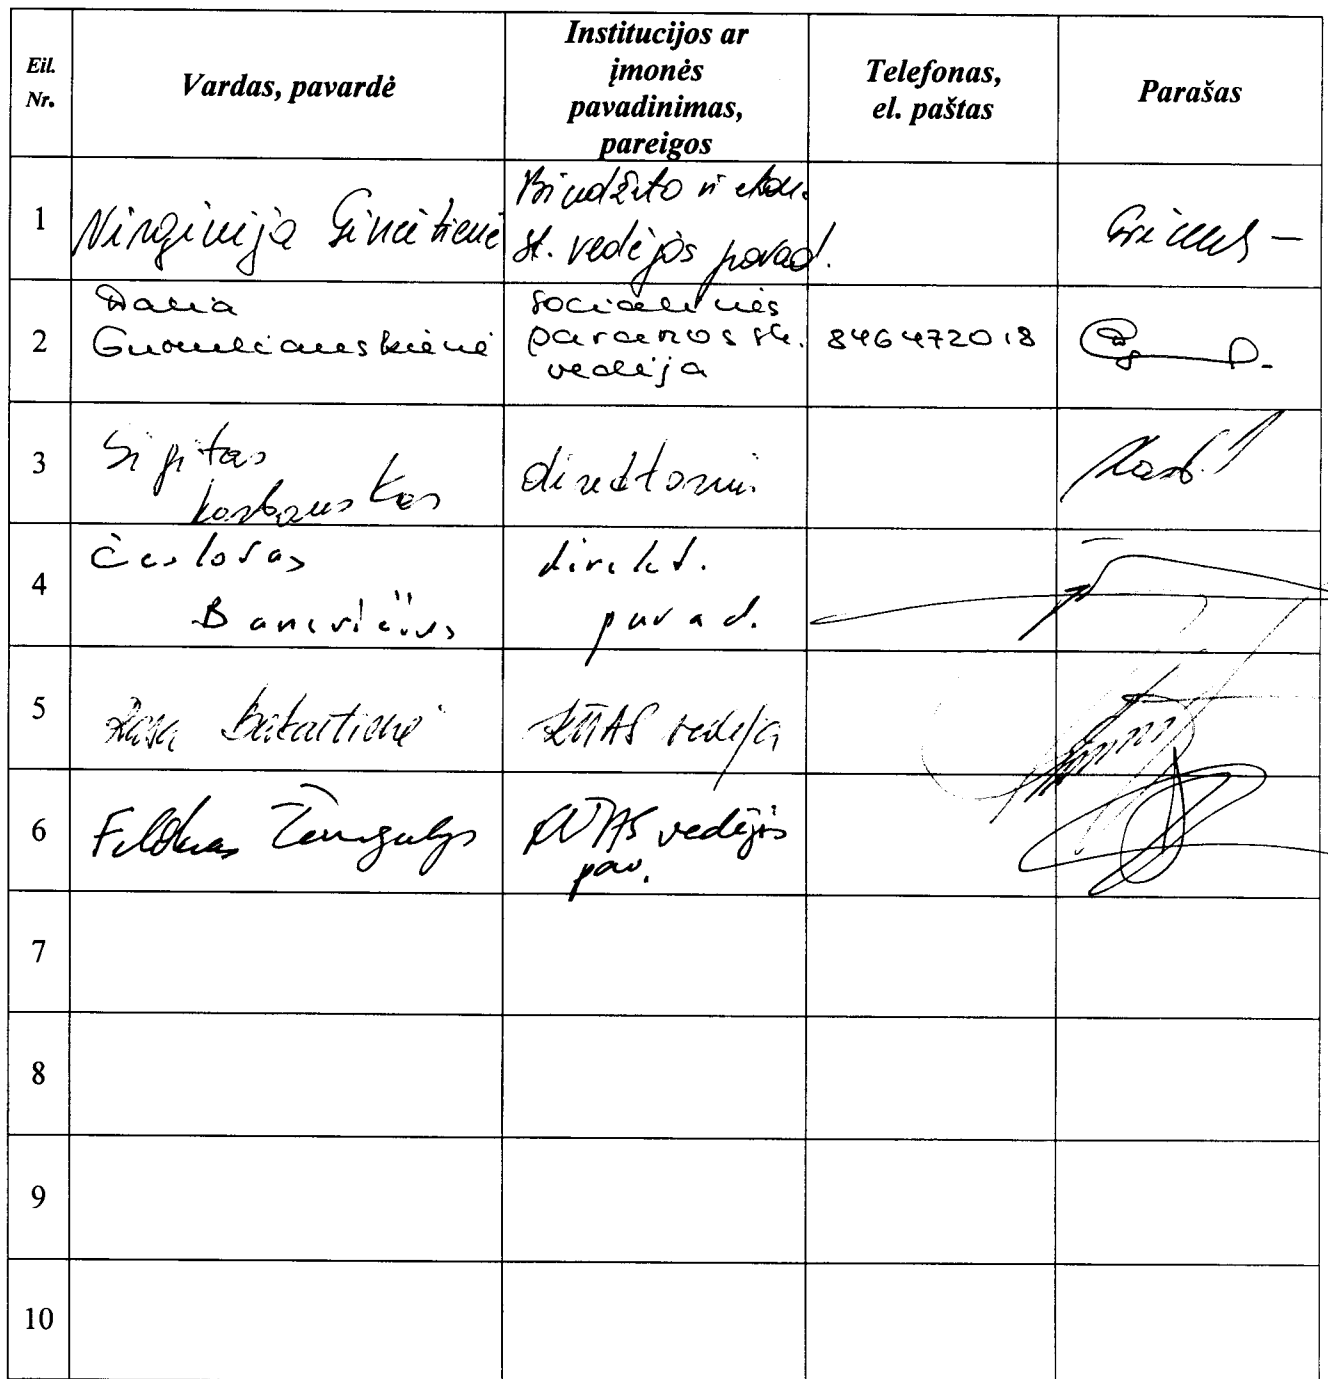 Eil. Nr.
Vardas, pavardė
Institucijos ar
įmonės
pavadinimas,
pareigos
Telefonas,
el. paštas
Parašas
1
Virginija
Biudžeto ir ekon.
sk. vedėjos pavad.
2
Dalia
Socialinės
paramos sk.
vedėja
846472018
3
Sigitas
Karbauskas
direktorius
4
Česlovas
Banevičius
direkt.
pavad.
5
Rasa
vedėja
6
Feliksas Žemgulys
vedėjos
pav.
7
8
9
10